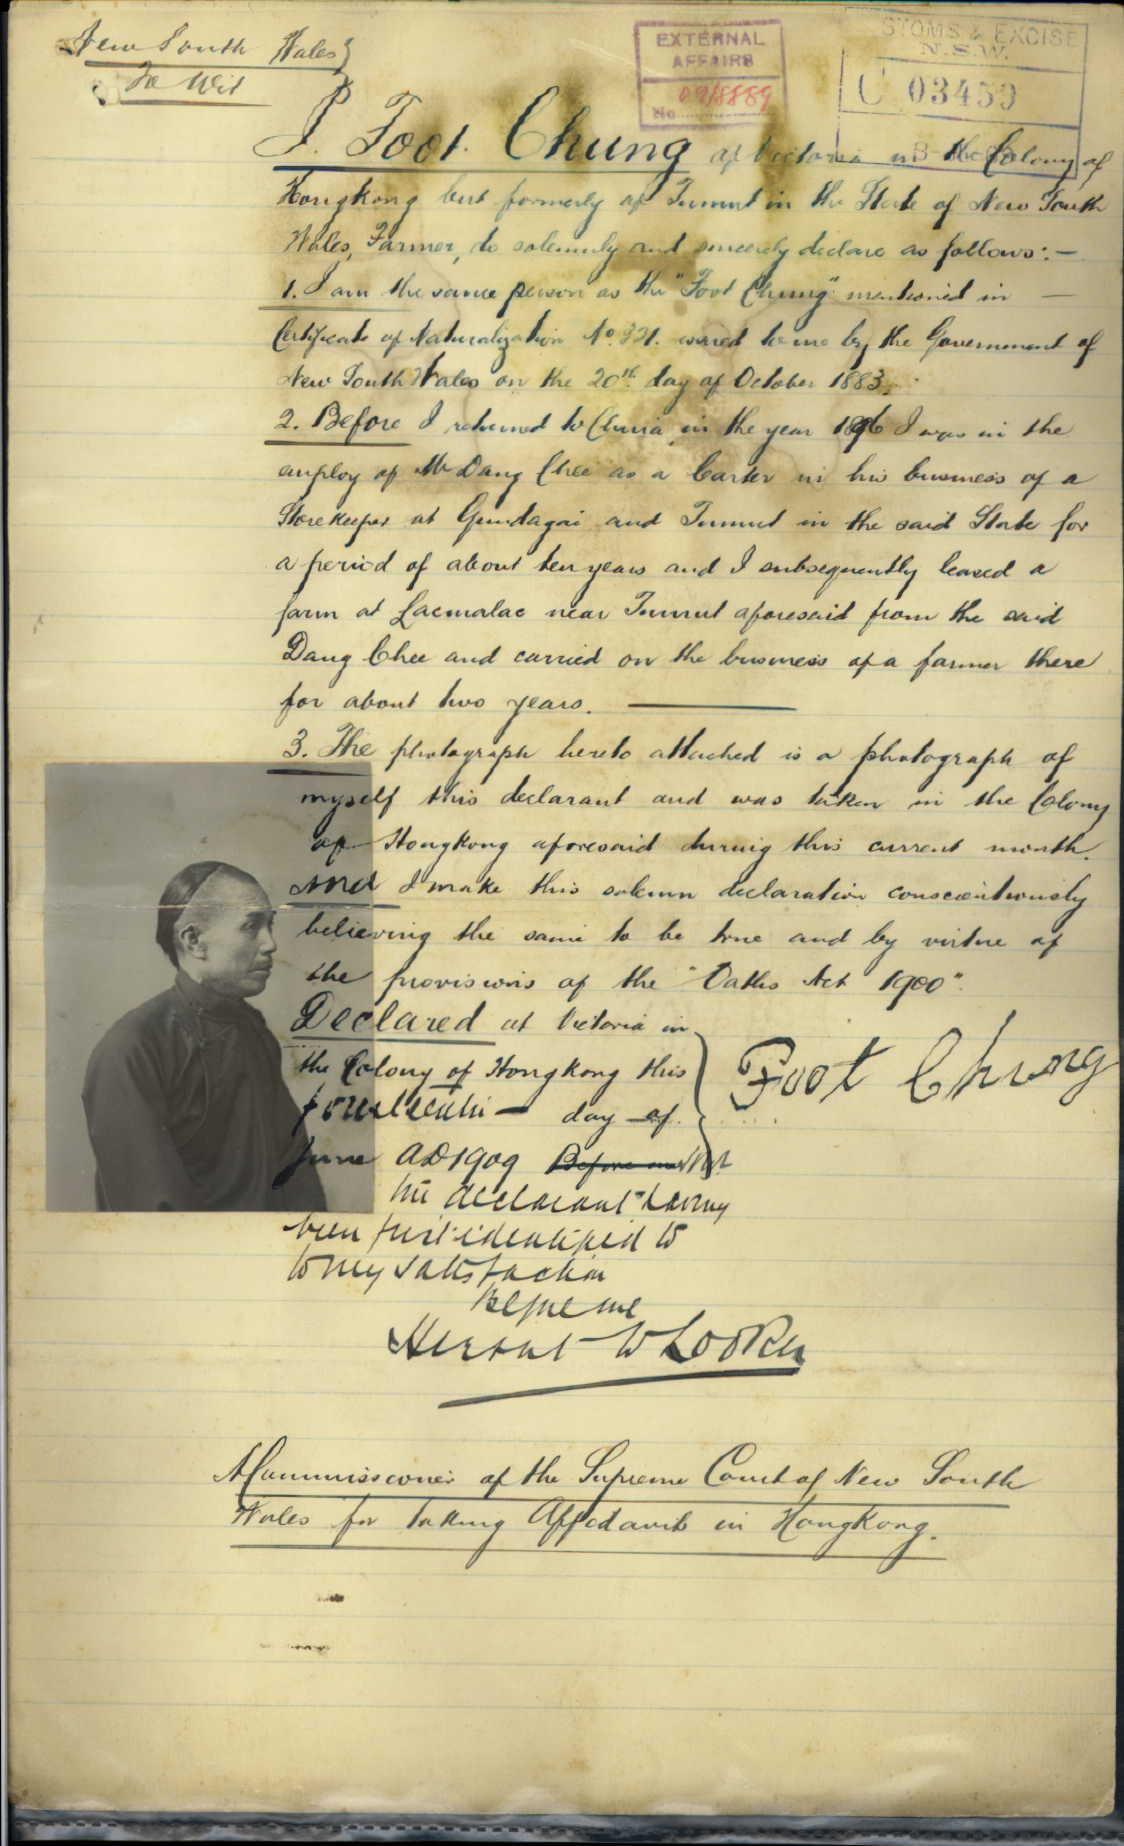 New South Wales }
To Wit
EXTERNAL
AFFAIRS
No 09/8889
STOMS & EXCISE
N.S.W.
C 03459
I. Foot. Chung of Victoria in the Colony of
Hongkong but formerly of Tumut in the State of New South
Wales, Farmer, do solemnly and sincerely declare as follows:—
1. I am the same person as the "Foot Chung" mentioned in —
Certificate of Naturalization No. issued to me by the Government of
New South Wales on the 20th day of October 1883.
2. Before I returned to China in the year 1896 I was in the
employ of Mr Dang Chee as a Carter in his business of a
Storekeeper at Gundagai and Tumut in the said State for
a period of about ten years and I subsequently leased a
farm at Lacmalac near Tumut aforesaid from the said
Dang Chee and carried on the business of a farmer there
for about two years. —
3. The photograph hereto attached is a photograph of
myself this declarant and was taken in the Colony
of Hongkong aforesaid during this current month.
And I make this solemn declaration conscientiously
believing the same to be true and by virtue of
the provisions of the "Oaths Act 1900".
Declared at Victoria in
the Colony of Hongkong this
fourteenth — day of
June AD 1909 Before me
Foot Chung
the declarant having
been first identified to
to my satisfaction
Before me
Herbert W Looker
A Commissioner of the Supreme Court of New South
Wales for taking Affidavits in Hongkong.